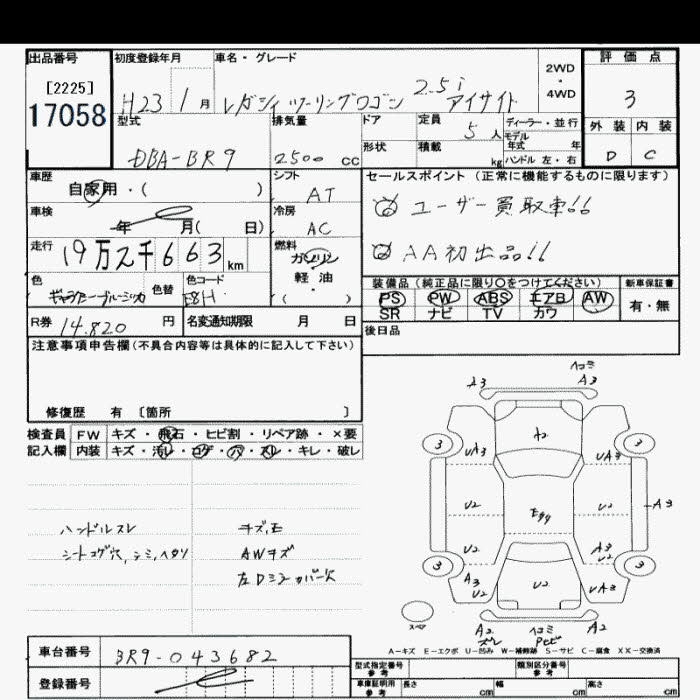 出品番号 初度登録年月 車名・グレード 2WD・4WD 評価点
[2225]
17058
H23 1月 レガシィツーリングワゴン 2.5i アイサイト 3
型式 排気量 ドア 定員 5人 ディーラー・並行 外装 内装
モデル年式 年
DBA-BR9 2500cc 形状 積載 kg ハンドル 左・右 D C
車歴 シフト セールスポイント(正常に機能するものに限ります)
自家用・( ) AT
ユーザー買取車!!
車検 冷房
年 月( 日) AC
AA初出品!!
走行 燃料
19万2千663km ガソリン
軽油
・( )
色 色替 色コード 装備品(純正品に限り〇をつけてください) 新車保証書
E8H PS PW ABS エアB AW 有・無
SR ナビ TV カワ
R券 14.820円 名変通知期限 月 日 後日品
注意事項申告欄(不具合内容等は具体的に記入して下さい)
修復歴 有 [箇所 ]
検査員 FW キズ・飛石・ヒビ割・リペア跡・×要
記入欄 内装 キズ・汚レ・コゲ・穴・スレ・キレ・破レ
ハンドルスレ キズ,E
シートコゲ穴,シミ,ヘタリ AWキズ
左Dミラーカバー欠
ヘコミ
A3 A3
A2
3 3
UA3 UA3
U2 U2 A3
U2 A3 U2
3 3
A3 U2 U2 UA3
スペア
A2 スレ ヘコミ A2
A-キズ E-エクボ U-凹み W-補修跡 S-サビ C-腐食 XX-交換済
車台番号 BR9-043682
型式指定番号 参考 類別区分番号 参考
登録番号
車庫証明用 参考 長さ cm 幅 cm 高さ cm